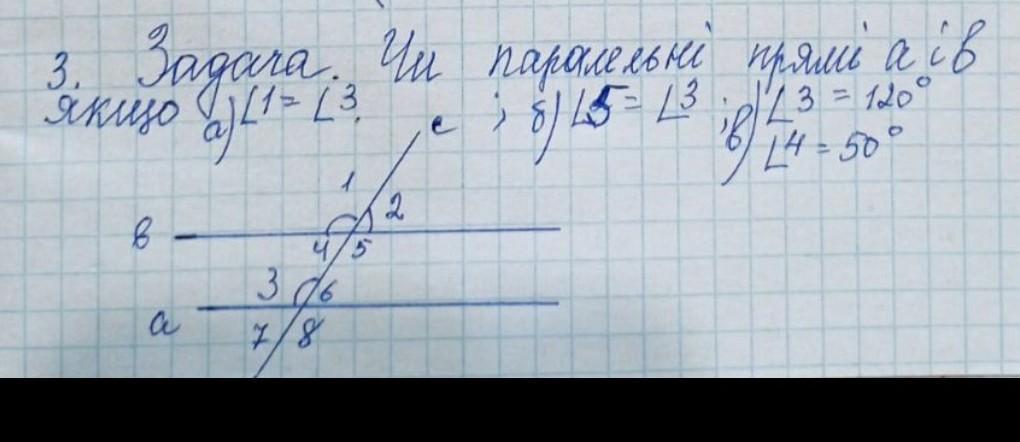 3. Задача. Чи паралельні прямі а і в
якщо а) ∠1 = ∠3 ; б) ∠5 = ∠3 ; в) ∠3 = 120°
∠4 = 50°
c
1
2
в
4 5
3 6
а
7 8